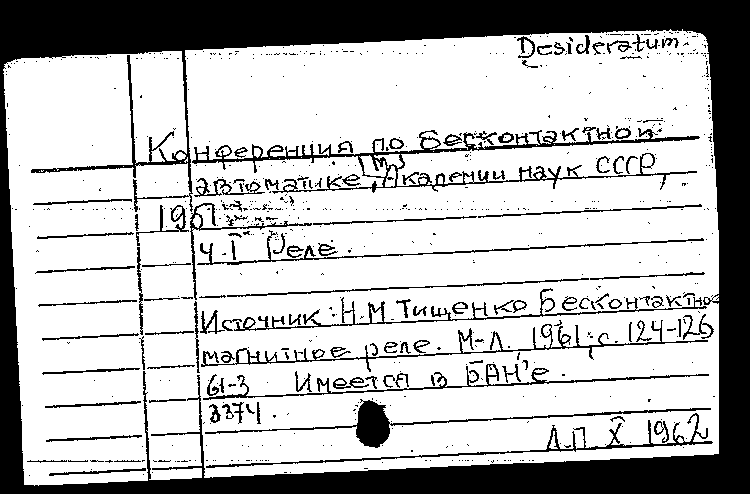 Desideratum.
Конференция по бесконтактной
автоматике, Академии наук СССР,
ч. I Реле.
Источник: Н.М. Тищенко Бесконтактное
магнитное реле. М-Л. 1961; с. 124-126
61-3 Имеется в БАН'е.
3374.
Л.П X 1962